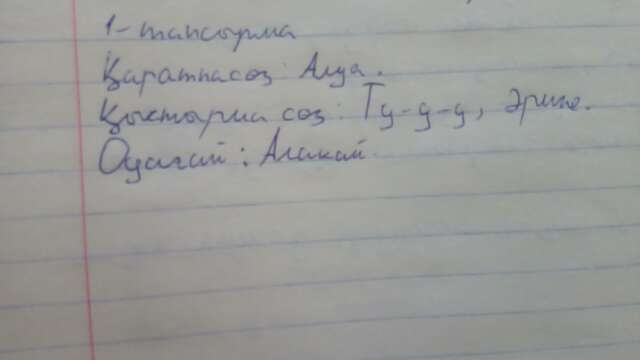 1-тапсырма
Қаратпа сөз: Алуа.
Қыстырма сөз: Ту-у-у, әрине.
Одағай: Алақай